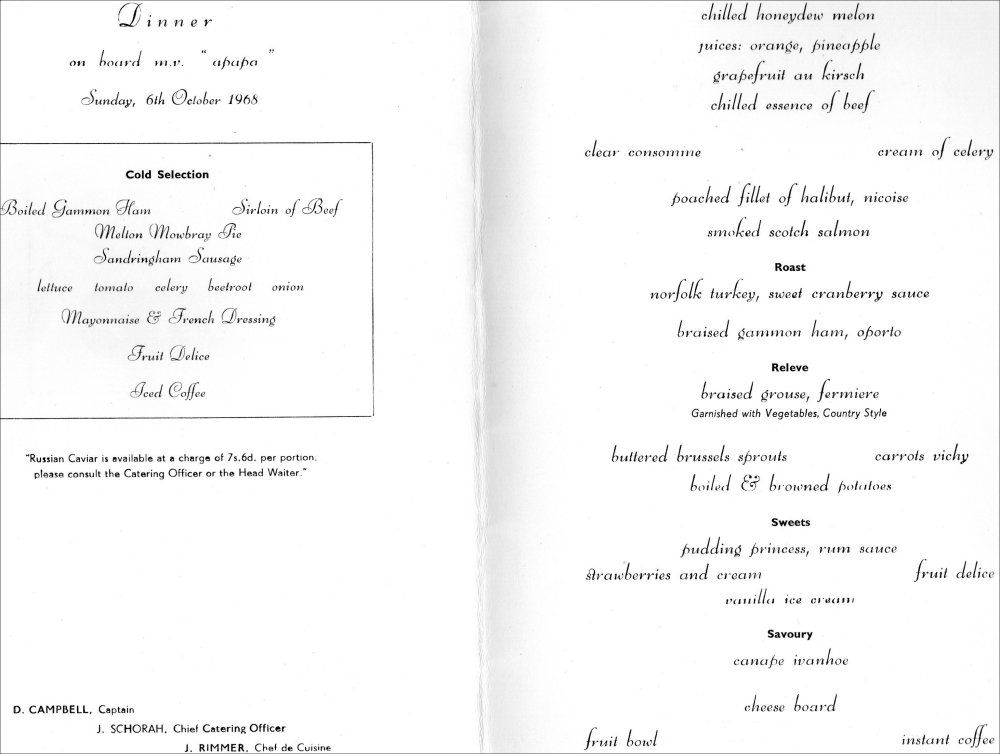 Dinner
on board m.v. "apapa"
Sunday, 6th October 1968
Cold Selection
Boiled Gammon Ham Sirloin of Beef
Melton Mowbray Pie
Sandringham Sausage
lettuce tomato celery beetroot onion
Mayonnaise & French Dressing
Fruit Delice
Iced Coffee
"Russian Caviar is available at a charge of 7s.6d. per portion,
please consult the Catering Officer or the Head Waiter."
D. CAMPBELL, Captain
J. SCHORAH, Chief Catering Officer
J. RIMMER, Chef de Cuisine
chilled honeydew melon
juices: orange, pineapple
grapefruit au kirsch
chilled essence of beef
clear consomme cream of celery
poached fillet of halibut, nicoise
smoked scotch salmon
Roast
norfolk turkey, sweet cranberry sauce
braised gammon ham, oporto
Releve
braised grouse, fermiere
Garnished with Vegetables, Country Style
buttered brussels sprouts carrots vichy
boiled & browned potatoes
Sweets
pudding princess, rum sauce
strawberries and cream fruit delice
vanilla ice cream
Savoury
canape ivanhoe
cheese board
fruit bowl instant coffee